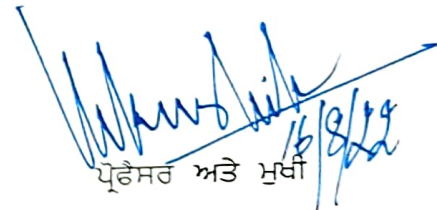 16/8/22
ਪ੍ਰੋਫੈਸਰ ਅਤੇ ਮੁਖੀ